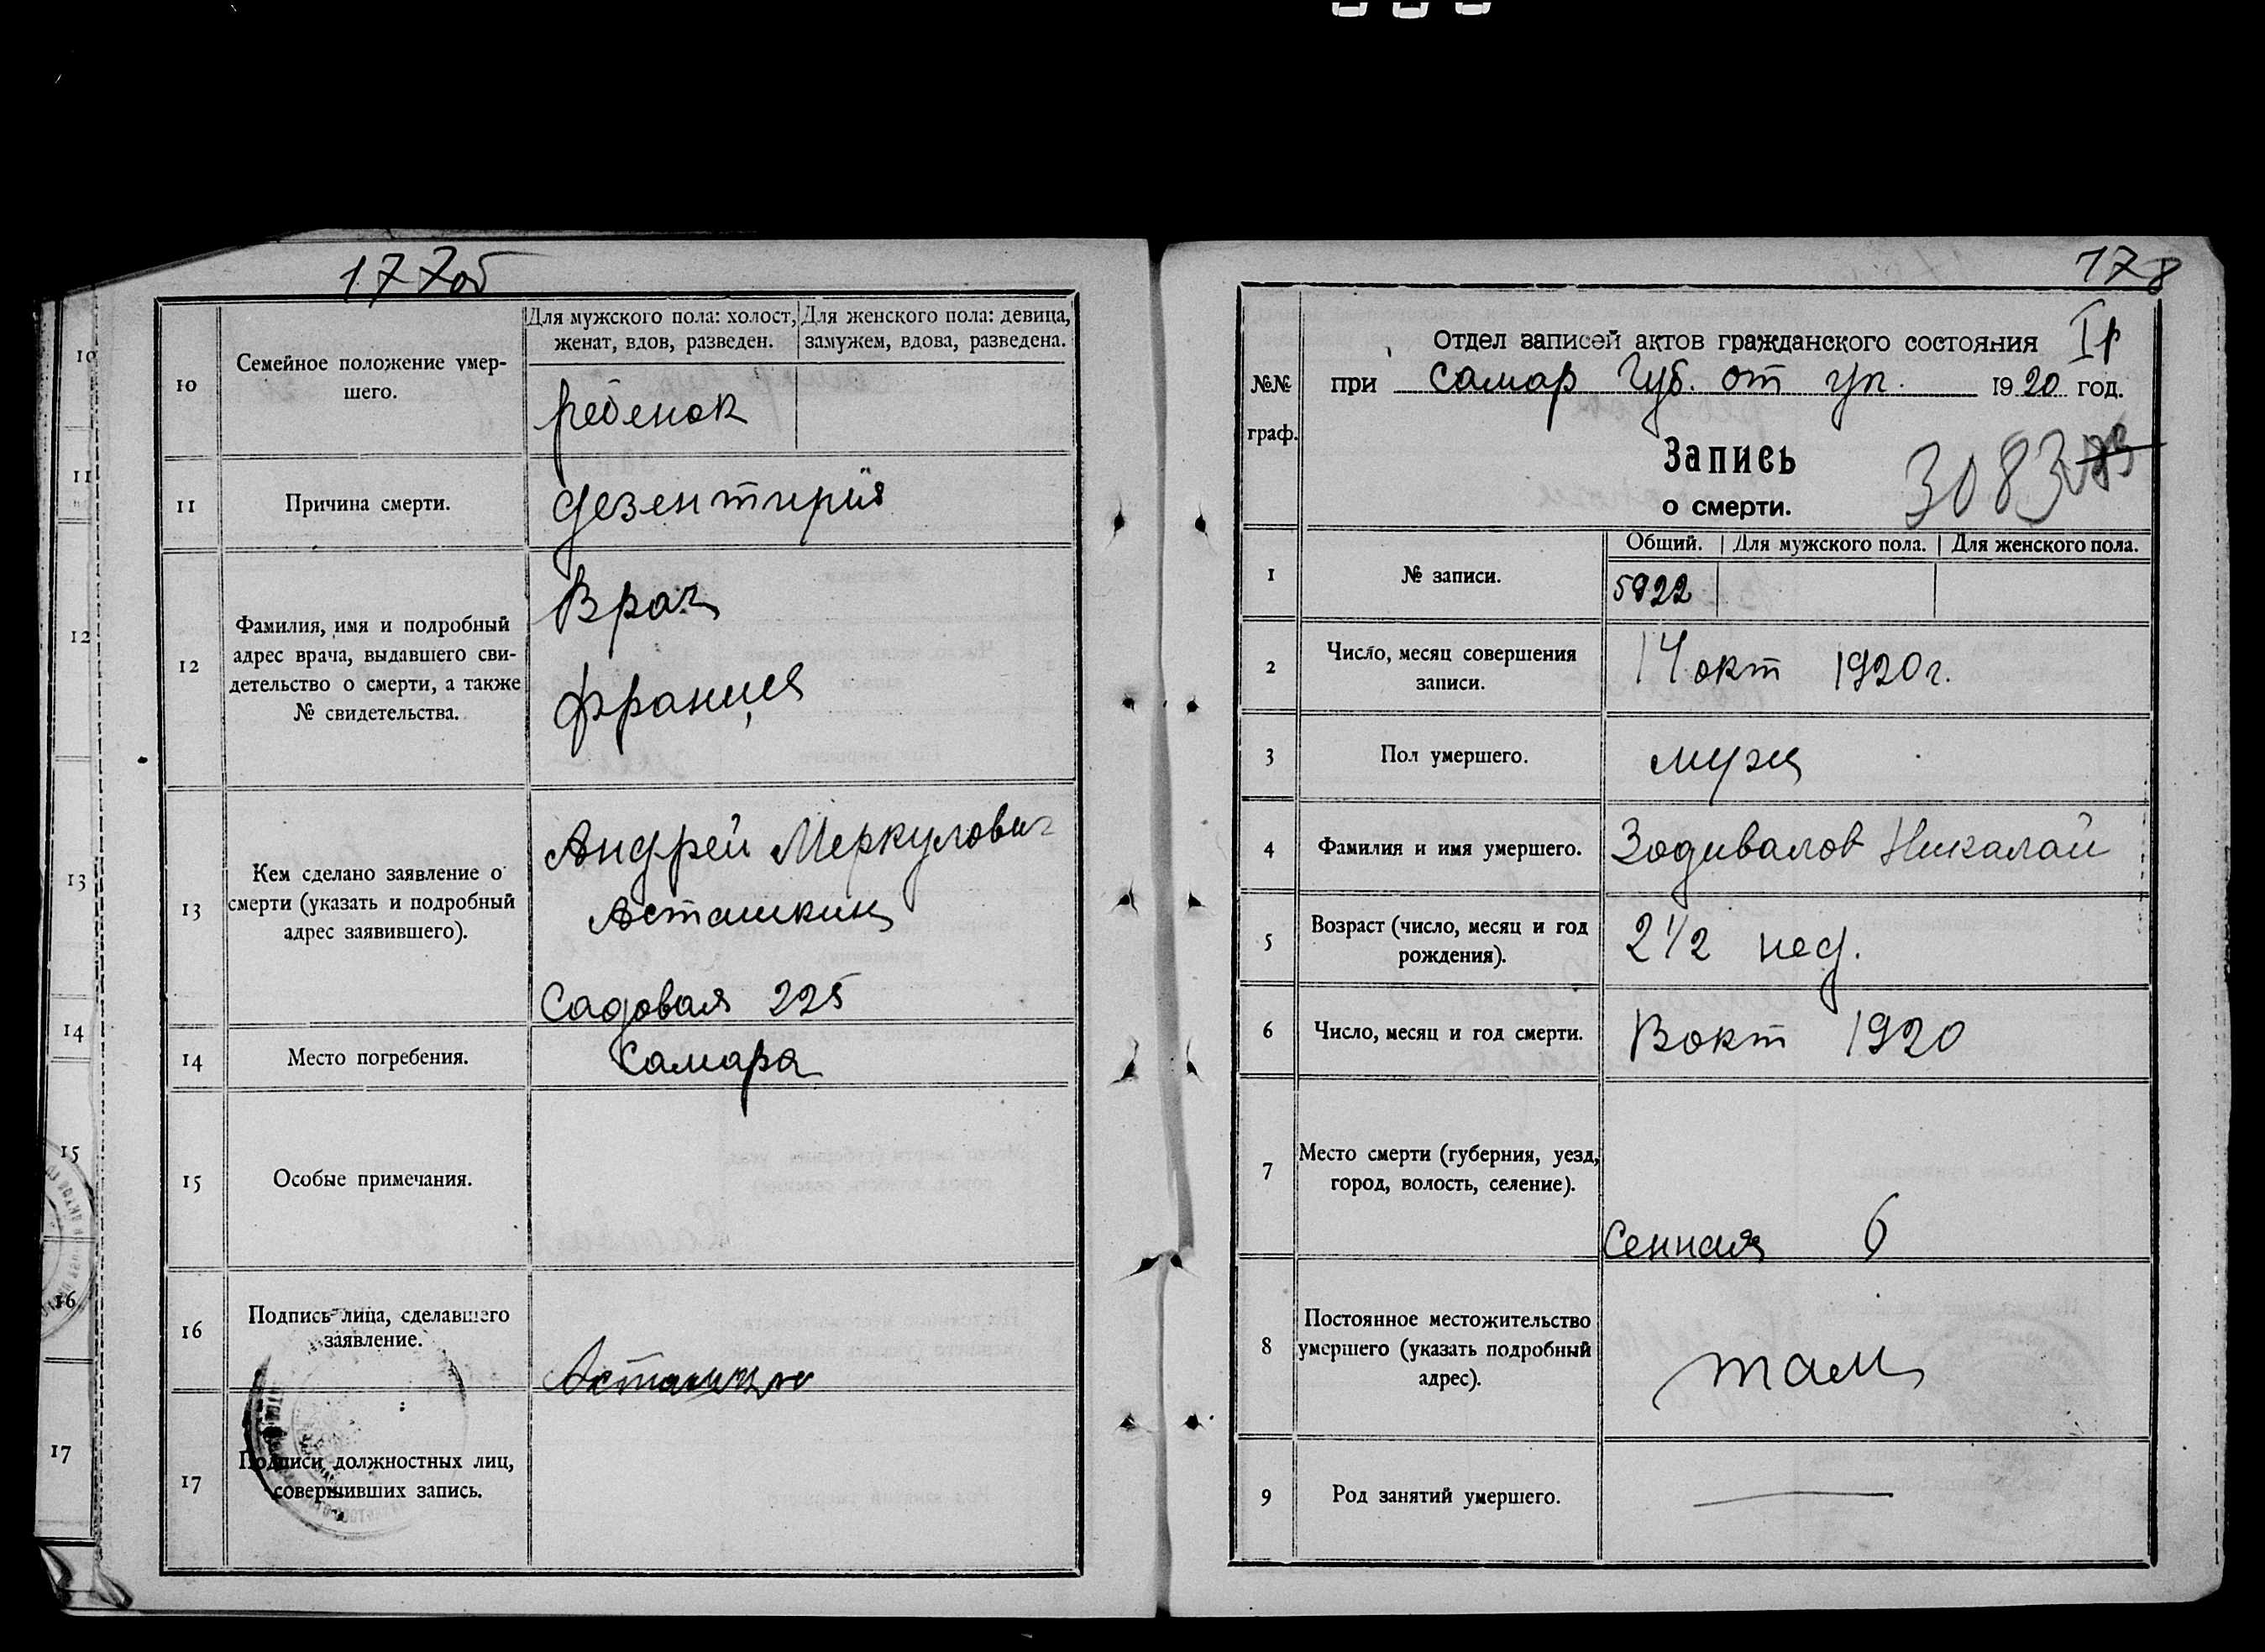 177об
10
Семейное положение умер-
шего.
Для мужского пола: холост,
женат, вдов, разведен.
Для женского пола: девица,
замужем, вдова, разведена.
ребенок
11
Причина смерти.
дезентирия
12
Фамилия, имя и подробный
адрес врача, выдавшего сви-
детельство о смерти, а также
№ свидетельства.
Врач
Франция
13
Кем сделано заявление о
смерти (указать и подробный
адрес заявившего).
Андрей Меркулович
Асташкин
Садовая 225
14
Место погребения.
Самара
15
Особые примечания.
16
Подпись лица, сделавшего
заявление.
Асташкин
17
Подписи должностных лиц,
совершивших запись.
10
11
12
13
14
15
16
17
178
Iр
№№
граф.
Отдел записей актов гражданского состояния
при Самар Губ. от уп. 1920 год.
Запись
о смерти.
3083
1
№ записи.
Общий. Для мужского пола. Для женского пола.
5922
2
Число, месяц совершения
записи.
14 окт 1920 г.
3
Пол умершего.
муж
4
Фамилия и имя умершего.
Зодивалов Никалай
5
Возраст (число, месяц и год
рождения).
2 1/2 нед.
6
Число, месяц и год смерти.
окт 1920
7
Место смерти (губерния, уезд,
город, волость, селение).
Сенная 6
8
Постоянное местожительство
умершего (указать подробный
адрес).
там
9
Род занятий умершего.